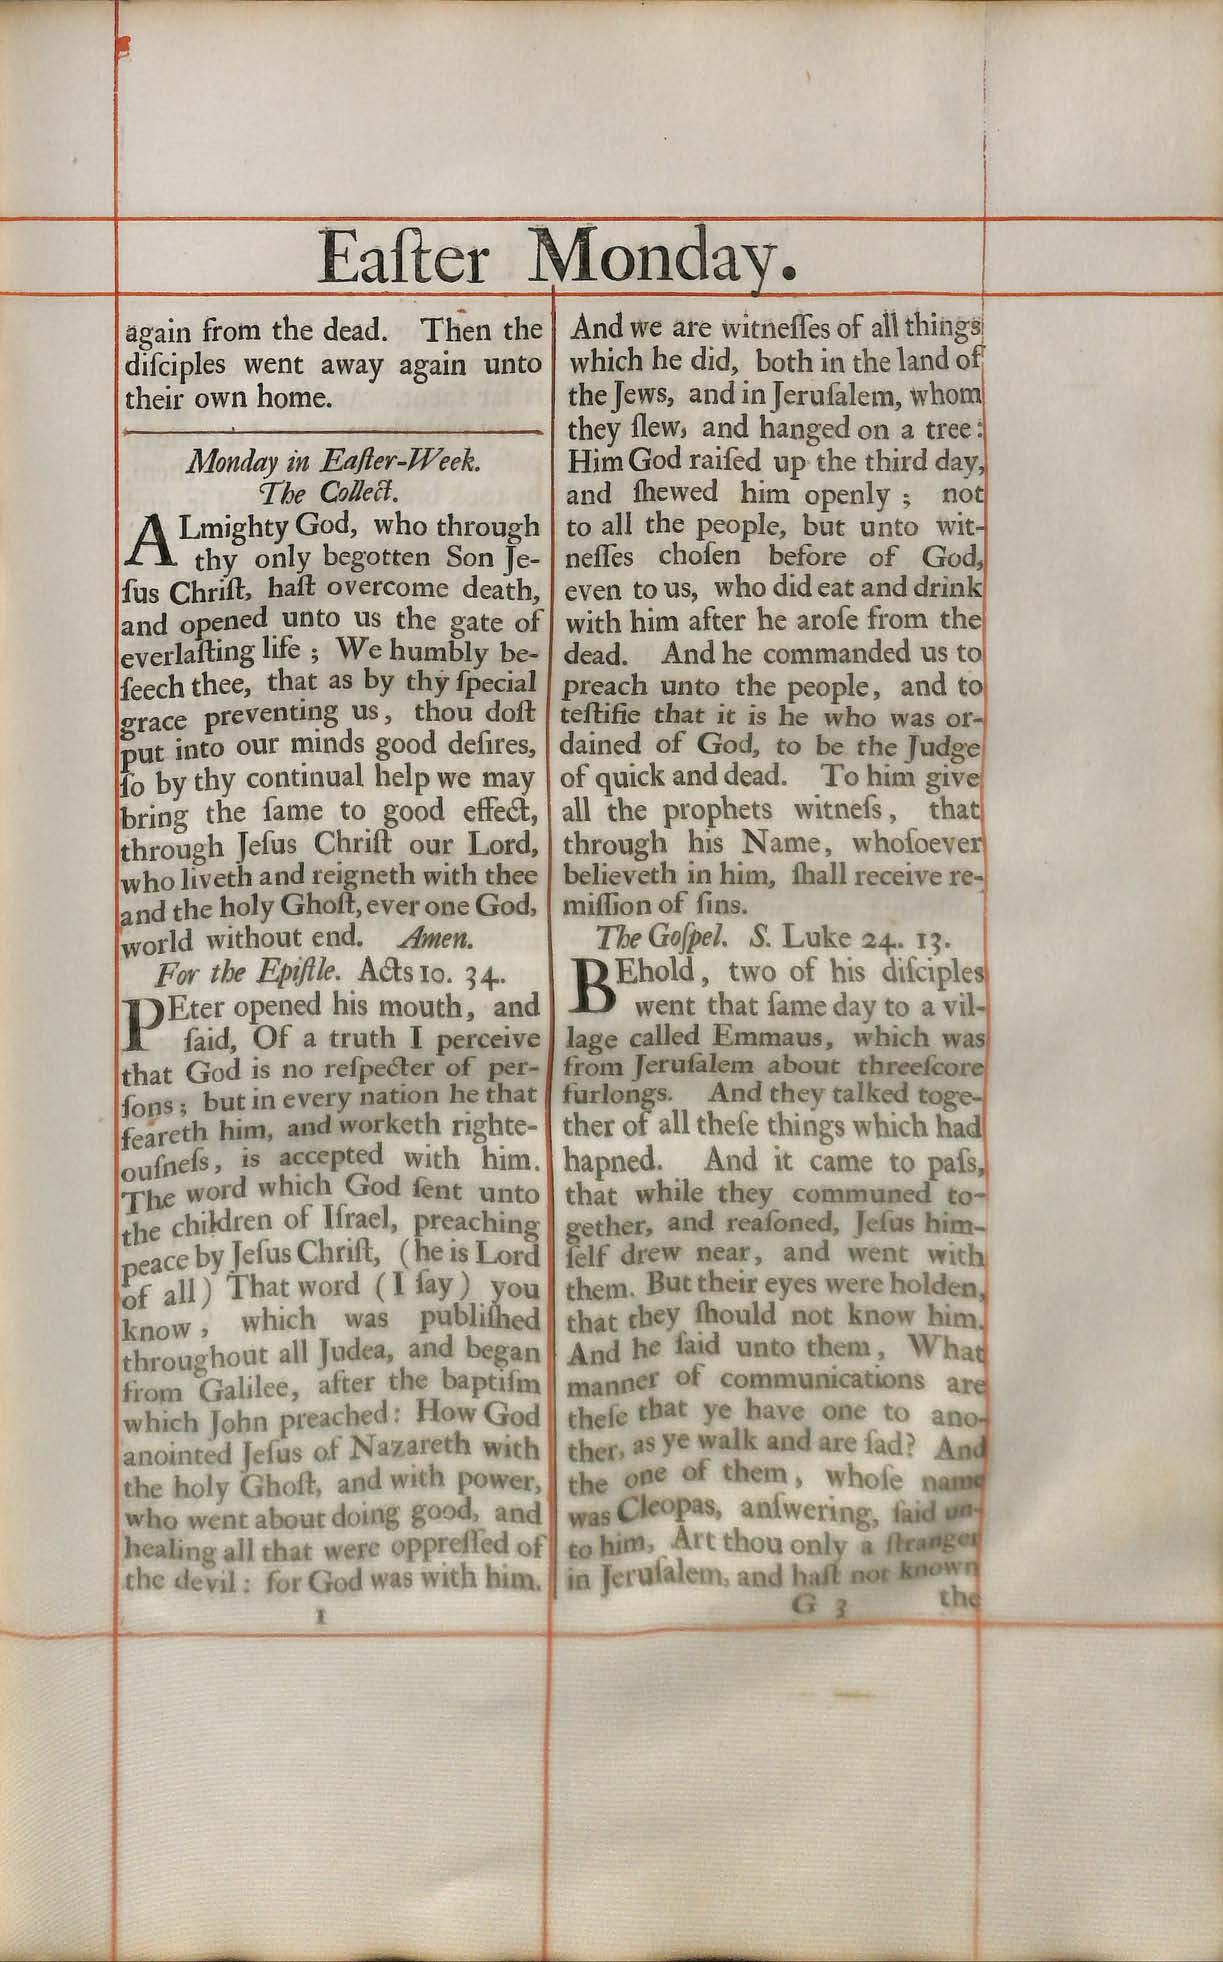 Eaſter Monday.
again from the dead. Then the
diſciples went away again unto
their own home.
Monday in Eaſter-Week.
The Collect.
ALmighty God, who through
thy only begotten Son Je-
ſus Chriſt, haſt overcome death,
and opened unto us the gate of
everlaſting life ; We humbly be-
ſeech thee, that as by thy ſpecial
grace preventing us, thou doſt
put into our minds good deſires,
ſo by thy continual help we may
bring the ſame to good effect,
through Jeſus Chriſt our Lord,
who liveth and reigneth with thee
and the holy Ghoſt, ever one God,
world without end. Amen.
For the Epiſtle. Acts 10. 34.
PEter opened his mouth, and
ſaid, Of a truth I perceive
that God is no reſpecter of per-
ſons; but in every nation he that
feareth him, and worketh righte-
ouſneſs, is accepted with him.
The word which God ſent unto
the children of Iſrael, preaching
peace by Jeſus Chriſt, (he is Lord
of all) That word (I ſay) you
know, which was publiſhed
throughout all Judea, and began
from Galilee, after the baptiſm
which John preached: How God
anointed Jeſus of Nazareth with
the holy Ghoſt, and with power,
who went about doing good, and
healing all that were oppreſſed of
the devil: for God was with him.
1
And we are witneſſes of all things
which he did, both in the land of
the Jews, and in Jeruſalem, whom
they ſlew, and hanged on a tree:
Him God raiſed up the third day,
and ſhewed him openly ; not
to all the people, but unto wit-
neſſes choſen before of God,
even to us, who did eat and drink
with him after he aroſe from the
dead. And he commanded us to
preach unto the people, and to
teſtifie that it is he who was or-
dained of God, to be the Judge
of quick and dead. To him give
all the prophets witneſs, that
through his Name, whoſoever
believeth in him, ſhall receive re-
miſſion of ſins.
The Goſpel. S. Luke 24. 13.
BEhold, two of his diſciples
went that ſame day to a vil-
lage called Emmaus, which was
from Jeruſalem about threeſcore
furlongs. And they talked toge-
ther of all theſe things which had
hapned. And it came to paſs,
that while they communed to-
gether, and reaſoned, Jeſus him-
ſelf drew near, and went with
them. But their eyes were holden,
that they ſhould not know him.
And he ſaid unto them, What
manner of communications are
theſe that ye have one to ano-
ther, as ye walk and are ſad? And
the one of them, whoſe name
was Cleopas, anſwering, ſaid un-
to him, Art thou only a ſtranger
in Jeruſalem, and haſt not known
G 3 the